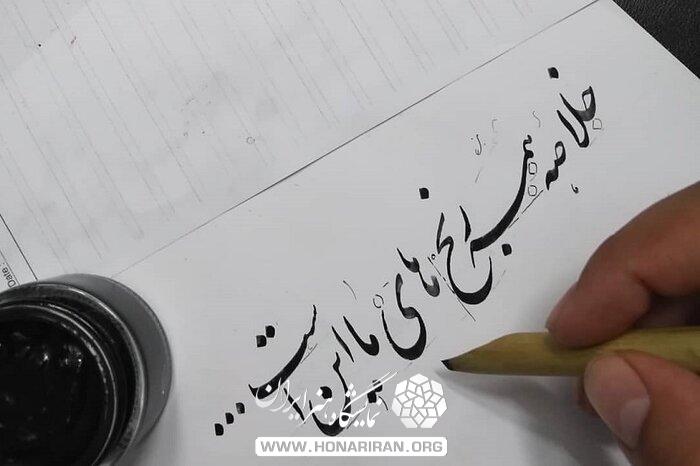 خلاصهٔ همه رنج‌های ما این است...
نمایشگاه هنر ایران
WWW.HONARIRAN.ORG
Date: